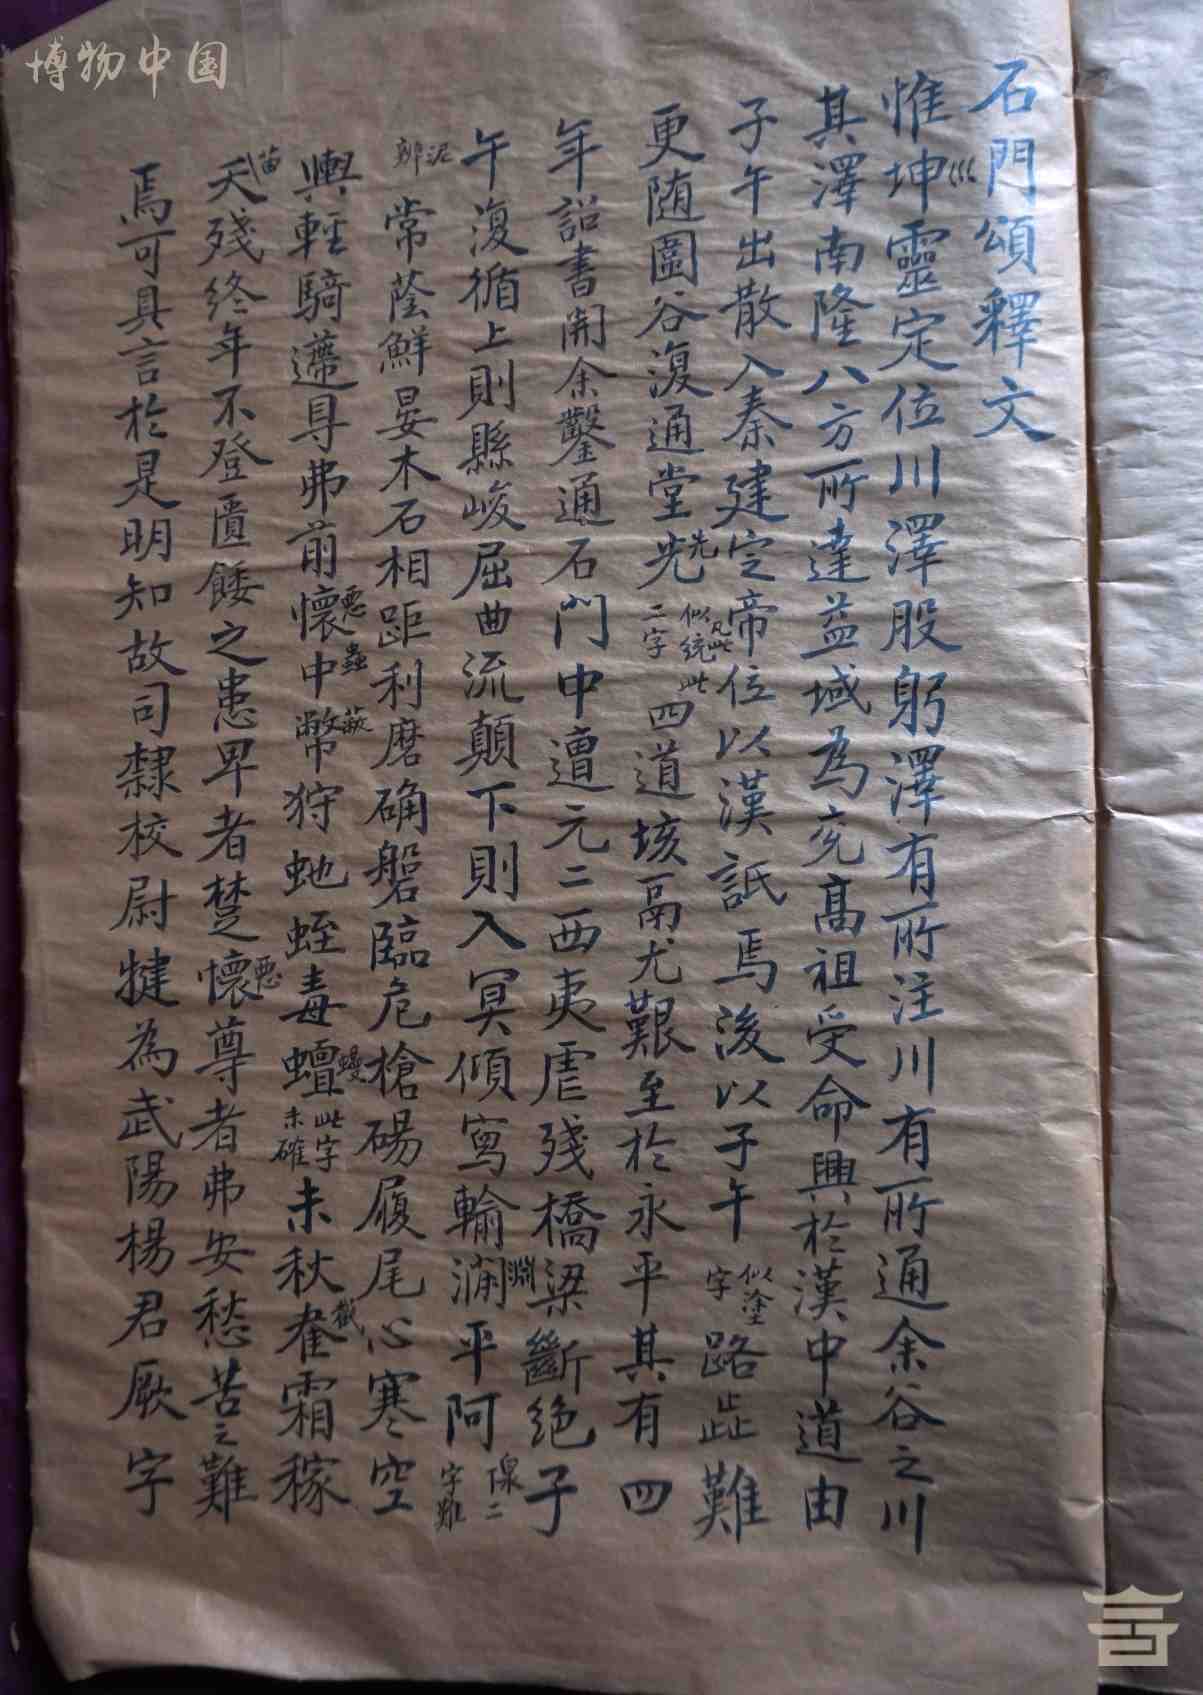 博物中国
石門頌釋文
惟坤巛靈定位川澤股躬澤有所注川有所通余谷之川
其澤南隆八方所達益域為充高祖受命興於漢中道由
子午出散入秦建定帝位以漢詆焉後以子午似塗字路歮難
更随圍谷復通堂光先凡此似統此二字四道垓鬲尤艱至於永平其有四
年詔書開余鑿通石門中遭元二西夷虐殘橋梁斷绝子
午復循上則縣峻屈曲流顛下則入冥傾寫輸淵平阿泉二字难
辨泥常蔭鮮晏木石相距利磨确磐臨危槍碭履尾心寒空
輿輕騎遰㝵弗前懷惡蟲中幣蔽狩虵蛭毒蟺蟃此字未確未秋截霜稼
苗夭殘终年不登匱餧之患卑者楚懷惡尊者弗安愁苦之難
焉可具言於是明知故司隸校尉犍為武陽楊君厥字